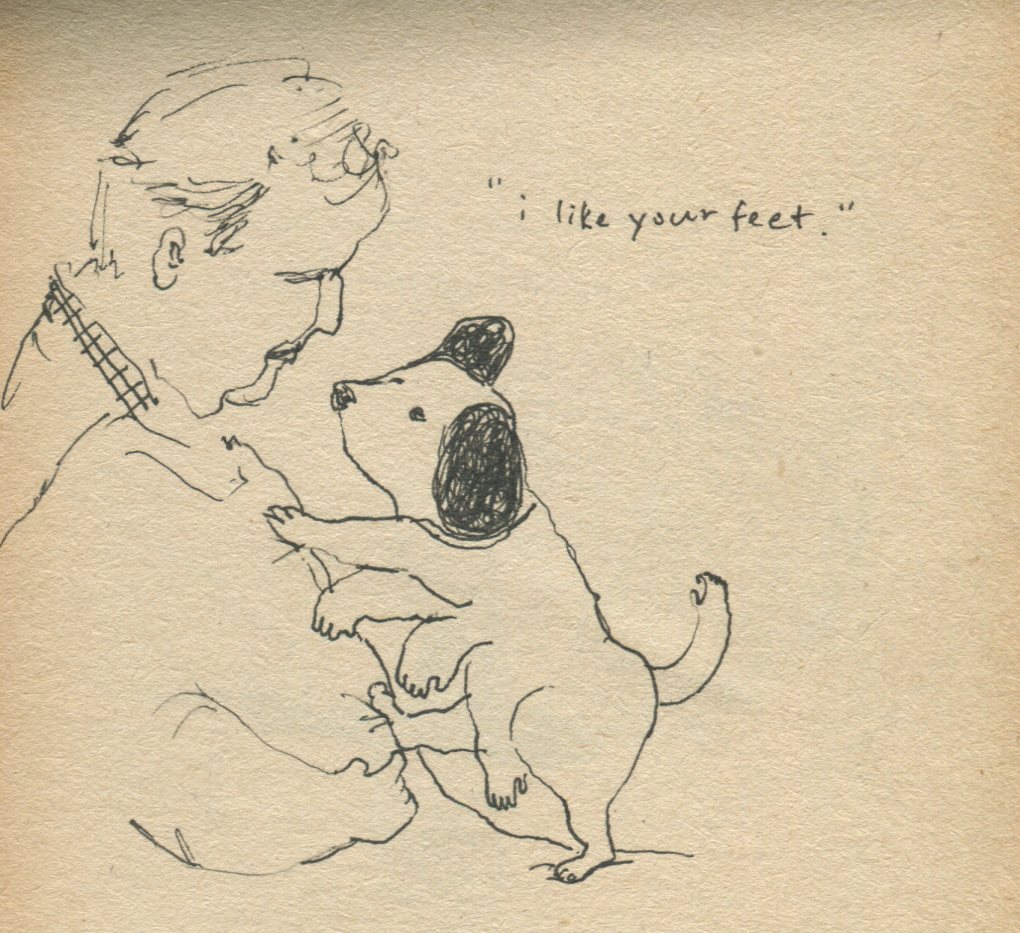 "i like your feet."